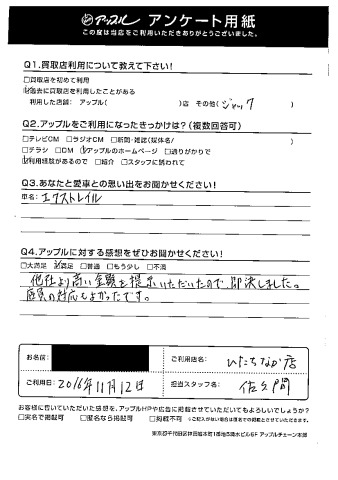 アップル アンケート用紙
この度は当店をご利用いただきありがとうございました。
Q1.買取店利用について教えて下さい!
□買取店を初めて利用
☑過去に買取店を利用したことがある
利用した店舗: アップル( )店 その他( ジャック )
Q2.アップルをご利用になったきっかけは?(複数回答可)
□テレビCM □ラジオCM □新聞・雑誌(媒体名/ )
□チラシ □DM ☑アップルのホームページ □通りがかりで
☑利用経験があるので □紹介 □スタッフに誘われて
Q3.あなたと愛車との思い出をお聞かせください!
車名: エクストレイル
Q4.アップルに対する感想をぜひお聞かせください!
□大満足 ☑満足 □普通 □もう少し □不満
他社より高い金額を提示いただいたので、即決しました。
店員の対応もよかったです。
お名前:
ご利用店名: ひたちなか店
ご利用日: 2016年11月12日
担当スタッフ名: 佐久間
お客様に書いていただいた感想を、アップルHPや広告に掲載させていただいてもよろしいでしょうか?
□実名で掲載可 □匿名なら掲載可 □掲載不可 (※ご記入がない場合は匿名での掲載とさせていただきます。)
アップルチェーン本部